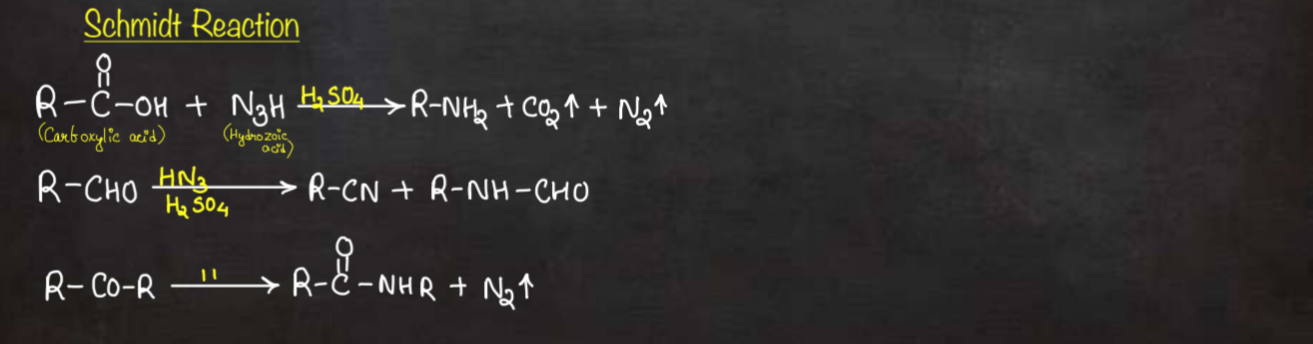 Schmidt Reaction
O
R-C-OH + N₃H H₂SO₄ → R-NH₂ + CO₂↑ + N₂↑
(Carboxylic acid) (Hydrozoic acid)
R-CHO HN₃ → R-CN + R-NH-CHO
H₂SO₄
O
R-Co-R " → R-C-NHR + N₂↑